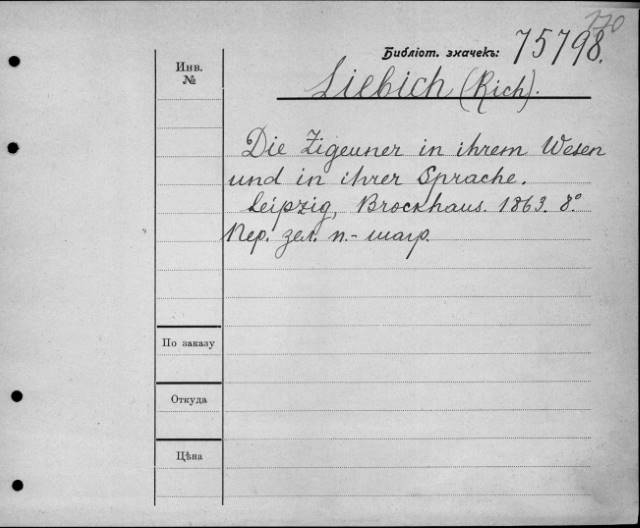 170
Библіот. значекъ: 75798.
Инв.
№
Liebich (Rich).
Die Zigeuner in ihrem Wesen
und in ihrer Sprache.
Leipzig, Brockhaus. 1863. 8°
Пер. зел. п.-шагр.
По заказу
Откуда
Цѣна